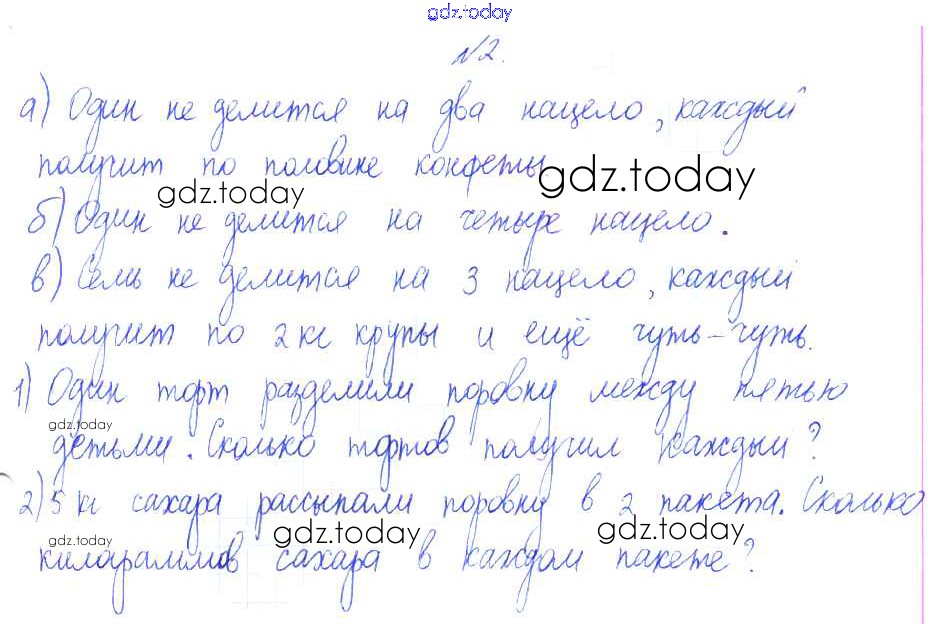 gdz.today
№2.
а) Один не делится на два нацело, каждый
получит по половине конфеты.
gdz.today
gdz.today
б) Один не делится на четыре нацело.
в) Семь не делится на 3 нацело, каждый
получит по 2 кг крупы и ещё чуть-чуть.
1) Один торт разделили поровну между пятью
gdz.today
детьми. Сколько тортов получил каждый?
2) 5 кг сахара рассыпали поровну в 2 пакета. Сколько
gdz.today
gdz.today
gdz.today
килараммов сахара в каждом пакете?